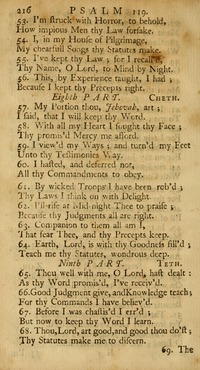 216 PSALM 119.
53. I'm struck with Horror, to behold,
How impious Men thy Law forsake.
54. I, in my House of Pilgrimage,
My chearfull Songs thy Statutes make.
55. I've kept thy Law; for I recall'd,
Thy Name, O Lord, to Mind by Night.
56. This, by Experience taught, I had;
Because I kept thy Precepts right.
Eighth PART. CHETH.
57. My Portion thou, Jehovah, art;
I said, that I will keep thy Word.
58. With all my Heart I sought thy Face;
Thy promis'd Mercy me afford.
59. I view'd my Ways; and turn'd my Feet
Unto thy Testimonies Way.
60. I hasted, and deferred not,
All thy Commandments to obey.
61. By wicked Troops I have been rob'd;
Thy Laws I think on with Delight.
62. I'll rise at Mid-night Thee to praise;
Because thy Judgments all are right.
63. Companion to them all am I,
That fear Thee, and thy Precepts keep.
64. Earth, Lord, is with thy Goodness fill'd;
Teach me thy Statutes, wondrous deep.
Ninth PART. TETH.
65. Thou well with me, O Lord, hast dealt:
As thy Word promis'd, I've receiv'd.
66. Good Judgment give, and Knowledge teach;
For thy Commands I have believ'd.
67. Before I was chastis'd I err'd;
But now to keep thy Word I learn.
68. Thou, Lord, art good, and good thou do'st;
Thy Statutes make me to discern.
69. The